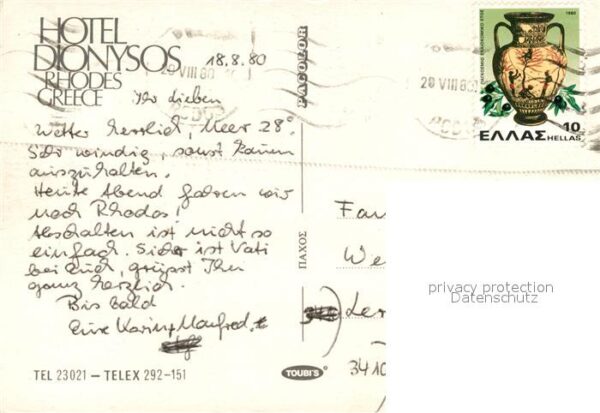 HOTEL
DIONYSOS
RHODES
GREECE
18.8.80
Ihr Lieben
Wetter herrlich, Meer 28°.
Sehr windig, sonst kaum
auszuhalten.
Heute Abend fahren wir
nach Rhodos!
Abschalten ist nicht so
einfach. Sicher ist Vati
bei Euch, grüsst Ihn
ganz herzlich.
Bis bald
Eure Karin + Manfred.
TEL 23021 – TELEX 292-151
PACOLOR
ΠΑΧΟΣ
TOUBI'S
20 VIII 80
20 VIII 80
1980
ΕΛΛΑΣ 10
HELLAS
Fam
We
Ler
3410
privacy protection
Datenschutz